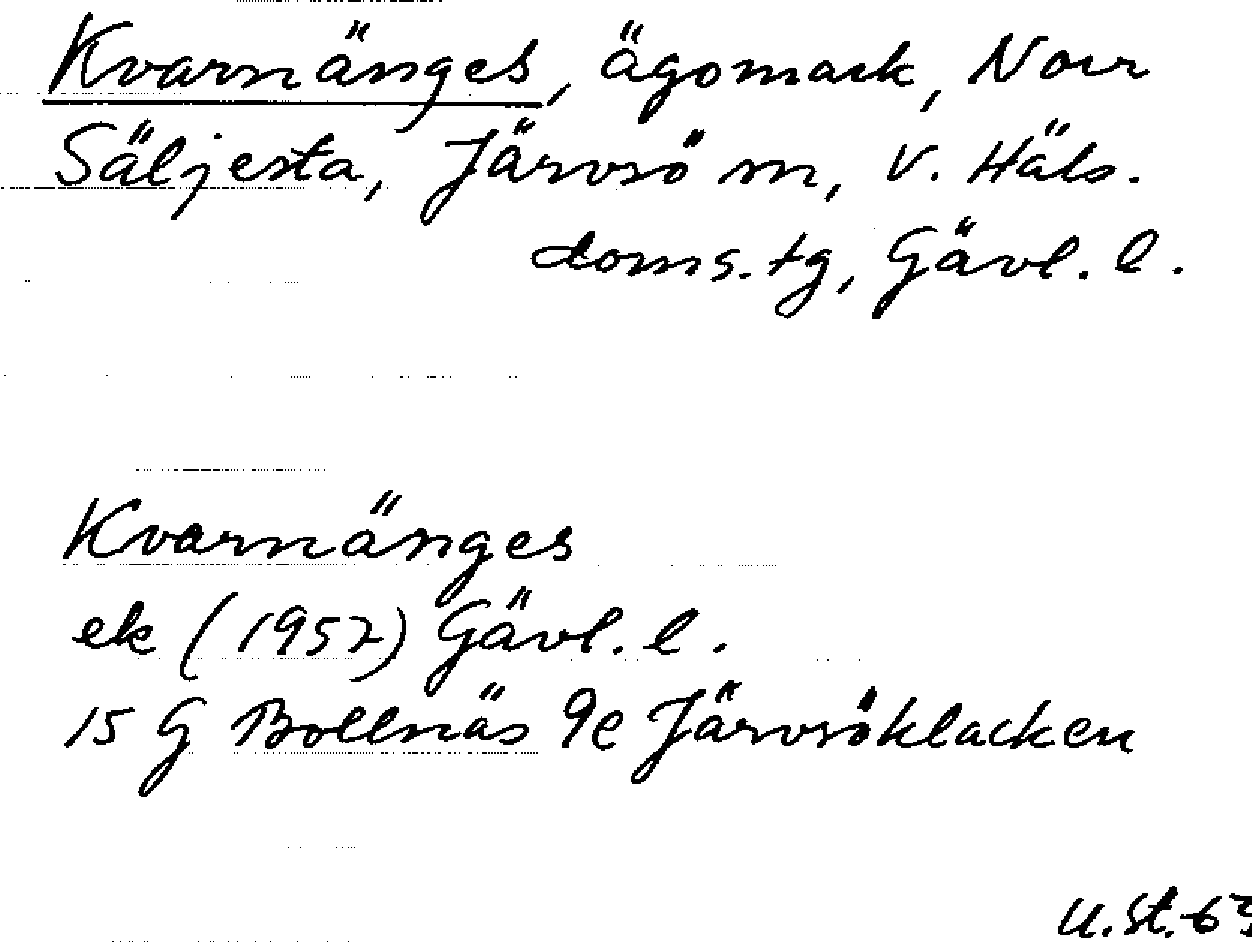 Kvarnänges, ägomark, Norr
Säljesta, Järvsö sn, V. Häls.
doms.tg, Gävl. l.
Kvarnänges
ek (1957) Gävl. l.
15 G Bollnäs 9e Järvsöklacken
U.St.-63